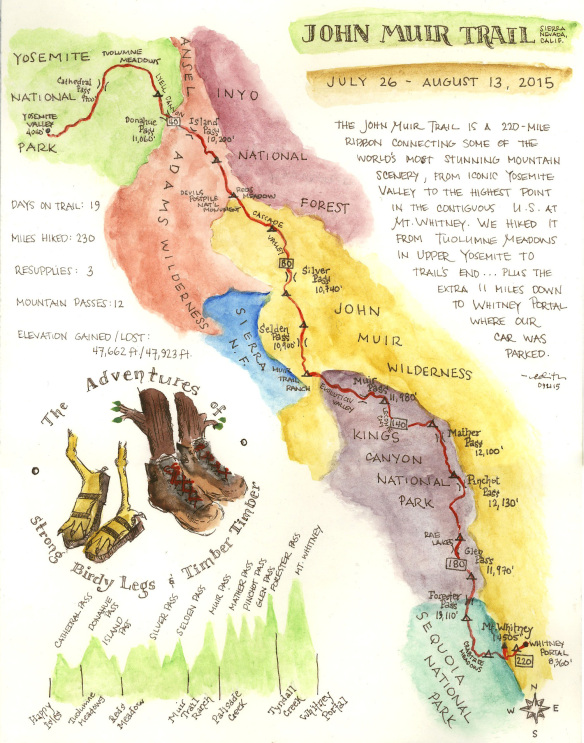 JOHN MUIR TRAIL
SIERRA
NEVADA,
CALIF.
JULY 26 - AUGUST 13, 2015
THE JOHN MUIR TRAIL IS A 220-MILE
RIBBON CONNECTING SOME OF THE
WORLD'S MOST STUNNING MOUNTAIN
SCENERY, FROM ICONIC YOSEMITE
VALLEY TO THE HIGHEST POINT
IN THE CONTIGUOUS U.S. AT
MT. WHITNEY. WE HIKED IT
FROM TUOLUMNE MEADOWS
IN UPPER YOSEMITE TO
TRAIL'S END... PLUS THE
EXTRA 11 MILES DOWN
TO WHITNEY PORTAL
WHERE OUR
CAR WAS
PARKED.
YOSEMITE
NATIONAL
PARK
TUOLUMNE
MEADOWS
Cathedral
Pass
9700'
YOSEMITE
VALLEY
4040'
LYELL CANYON
Donahue
Pass
11,060'
40
ANSEL
ADAMS WILDERNESS
Island
Pass
10,200'
INYO
NATIONAL
FOREST
DEVILS
POSTPILE
NAT'L
MONUMENT
REDS
MEADOW
CASCADE
VALLEY
80
Silver
Pass
10,740'
Selden
Pass
10,900'
SIERRA
N.F.
MUIR
TRAIL
RANCH
JOHN
MUIR
WILDERNESS
EVOLUTION
VALLEY
Muir
Pass
11,980'
140
KINGS
CANYON
NATIONAL
PARK
Mather
Pass
12,100'
Pinchot
Pass
12,130'
RAE
LAKES
Glen
Pass
11,970'
180
Forester
Pass
13,110'
SEQUOIA
NATIONAL
PARK
Mt. Whitney
14,505'
WHITNEY
PORTAL
8,360'
220
N
W
E
S
DAYS ON TRAIL: 19
MILES HIKED: 230
RESUPPLIES: 3
MOUNTAIN PASSES: 12
ELEVATION GAINED/LOST:
47,662 ft/47,923 ft.
The Adventures of
Strong Birdy Legs & Timber Timber
CATHEDRAL PASS
DONAHUE
PASS
ISLAND
PASS
SILVER PASS
SELDEN PASS
MUIR PASS
MATHER PASS
PINCHOT PASS
GLEN PASS
FORESTER PASS
MT. WHITNEY
Happy
Isles
Tuolumne
Meadows
Reds
Meadow
Muir
Trail
Ranch
Palisade
Creek
Tyndall
Creek
Whitney
Portal